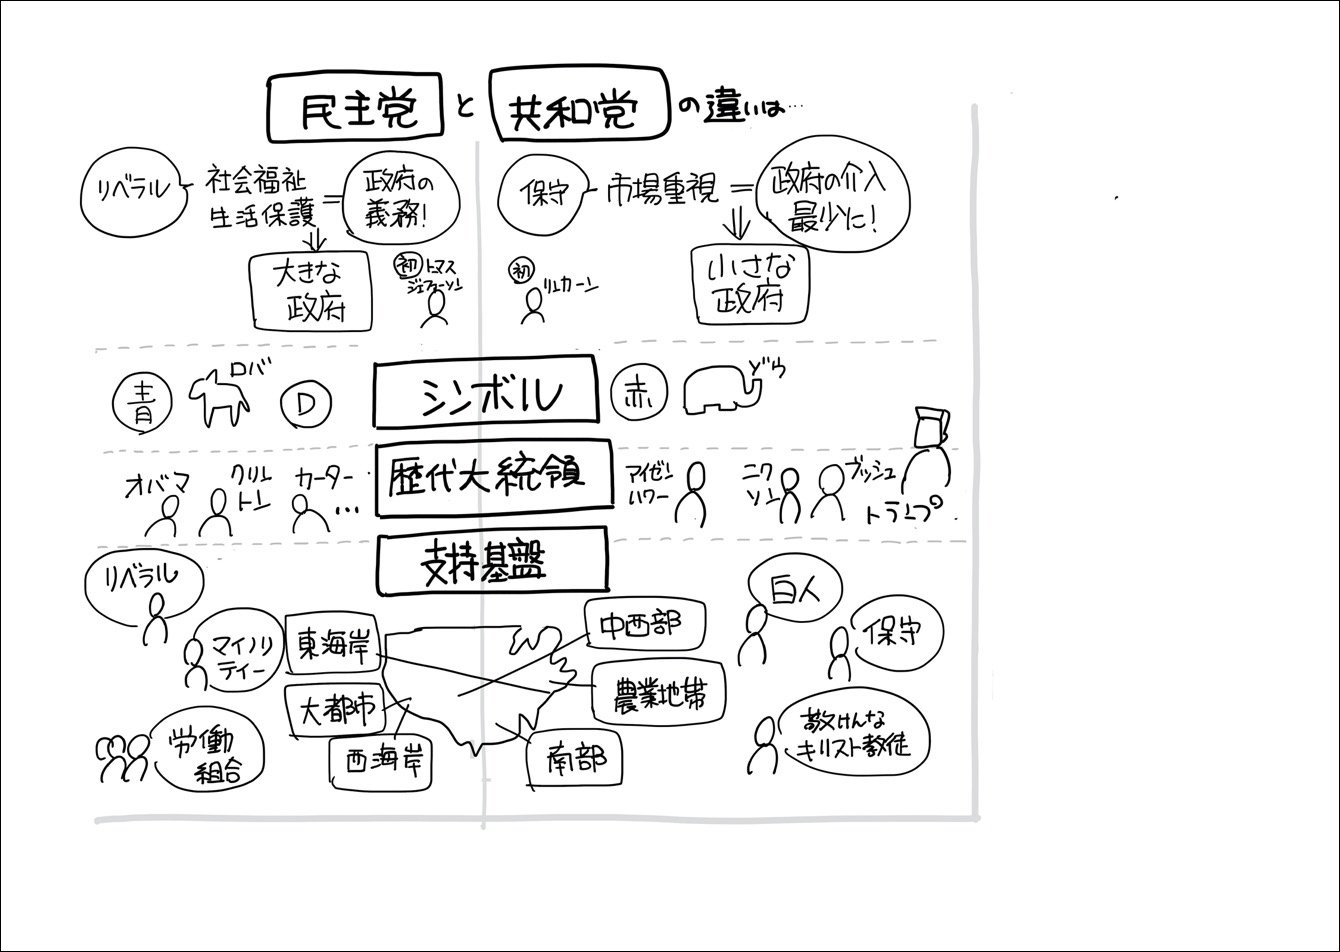 民主党 と 共和党 の違いは…
リベラル
社会福祉
生活保護
=
政府の
義務!
保守
市場重視
=
政府の介入
最少に!
大きな
政府
初 トマス
ジェファーソン
初
リンカーン
小さな
政府
青
ロバ
D
シンボル
赤
ゾウ
オバマ
クリン
トン
カーター
…
歴代大統領
アイゼン
ハワー
ニク
ソン
ブッシュ
トランプ
支持基盤
リベラル
マイノリ
ティー
労働
組合
東海岸
大都市
西海岸
中西部
農業地帯
南部
白人
保守
敬けんな
キリスト教徒